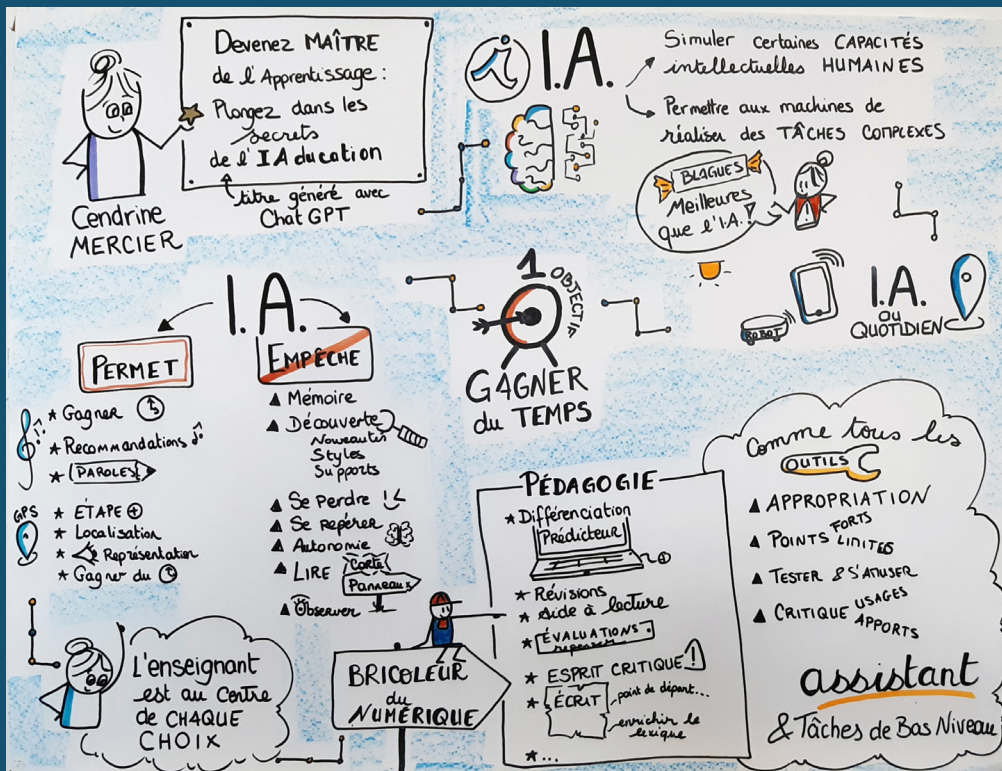 Devenez MAÎTRE
de l'Apprentissage :
Plongez dans les
secrets
de l'IAducation
titre généré avec
Chat GPT
Cendrine
MERCIER
i
I.A.
Simuler certaines CAPACITÉS
intellectuelles HUMAINES
Permettre aux machines de
réaliser des TÂCHES COMPLEXES
BLAGUES
Meilleures
que l'I.A.!
1
OBJECTIF
GAGNER
du TEMPS
I.A.
OU
QUOTIDIEN
ROBOT
I.A.
PERMET
★ Gagner
★ Recommandations
★ PAROLES
GPS
★ ÉTAPE +
★ Localisation
★ Représentation
★ Gagner du
EMPÊCHE
▲ Mémoire
▲ Découverte
Nouveautés
Styles
Supports
▲ Se Perdre
▲ Se repérer
▲ Autonomie
▲ LIRE
Carte
Panneaux
▲ Observer
L'enseignant
est au Centre
de CHAQUE
CHOIX
BRICOLEUR
du
NUMÉRIQUE
PÉDAGOGIE
★ Différenciation
Prédicteur
★ Révisions
★ Aide à lecture
★ ÉVALUATIONS
★ ESPRIT CRITIQUE !
★ ÉCRIT
point de départ...
enrichir le
lexique
★ ...
Comme tous les
OUTILS
▲ APPROPRIATION
▲ POINTS FORTS
LIMITES
▲ TESTER & S'AMUSER
▲ CRITIQUE USAGES
APPORTS
assistant
& Tâches de Bas Niveau